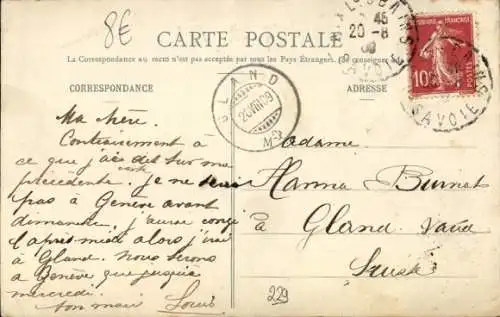 8€
CARTE POSTALE
La Correspondance au recto n'est pas acceptée par tous les Pays Étrangers.
CORRESPONDANCE
ADRESSE
RÉPUBLIQUE FRANÇAISE
10
45
20-8
09
SAVOIE
GLAND
20 VIII 09
Ma chère.
Contrairement à
ce que j'ai dit sur ma
carte
précédente je ne serai
pas à Genève avant
dimanche, j'aurai congé
l'après-midi alors j'irai
à Gland. Nous serons
à Genève que jusqu'à
mercredi.
ton mari Louis
Madame
Hanna Burnat
à Gland Vaud
Suisse
229